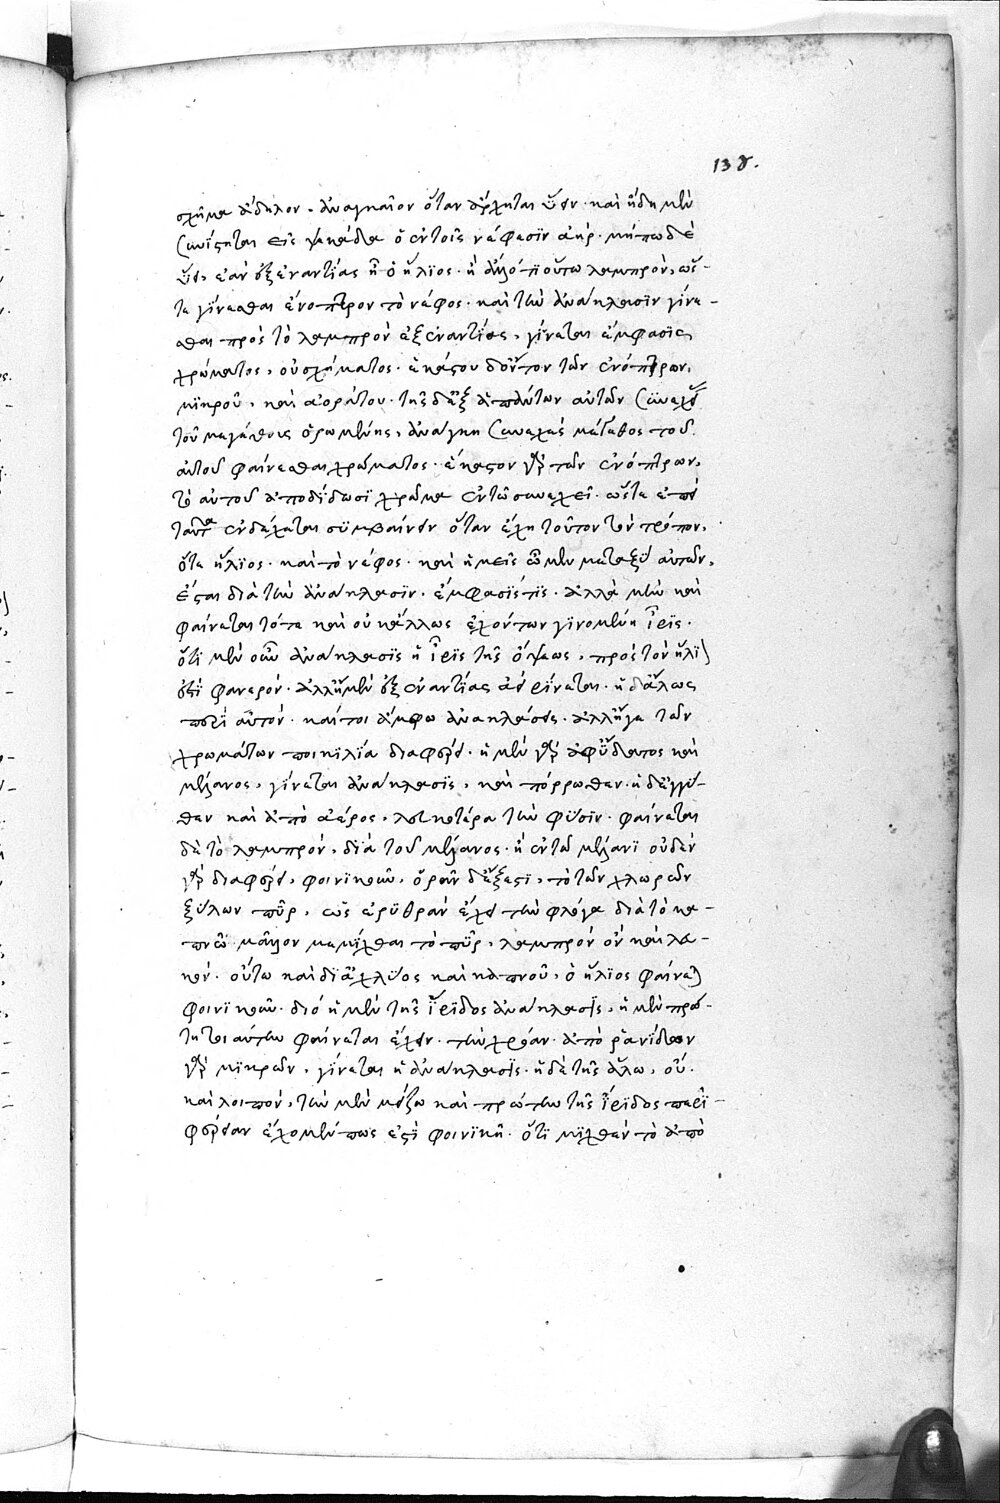 σχῆμα ἄδηλον. ἀναγκαῖον ὅταν ἄρχηται ὕειν· καὶ ἤδη μὲν
συνίστηται εἰς ψεκάδα ὁ ἐν τοῖς νέφεσϊν ἀήρ· μήπω δὲ
ὕει, ἐὰν ἐξ ἐναντίας ἢ ὁ ἥλϊος· ἢ ἄλλό τϊ οὕτω λαμπρὸν, ὥσ-
τε γίνεσθαι ἔνοπτρον τὸ νέφος· καὶ τὴν ἀνάκλασϊν γίνε-
σθαι πρὸς τὸ λαμπρὸν ἐξ ἐναντίας, γίνεται ἔμφασϊς
χρώματος, οὐ σχήματος· ἑκάστου δ' ὄντος τῶν ἐνόπτρων,
μϊκροῦ, καὶ ἀοράτου· τῆς δ' ἐξ ἁπάντων αὐτῶν συνεχεί
τοῦ μεγέθους ὁρωμένης, ἀνάγκη συνεχὲς μέγεθος τοῦ
αὐτοῦ φαίνεσθαι χρώματος· ἕκαστον γὰρ τῶν ἐνόπτρων,
τὸ αὐτοῦ ἀποδίδωσϊ χρῶμα ἐν τῶ συνεχεῖ· ὥστε ἐπεὶ
ταῦτα ἐνδέχεται συμβαίνειν ὅταν ἔχη τοῦτον τὸν τρόπον,
ὅτε ἥλϊος· καὶ τὸ νέφος· καὶ ἡμεῖς ὦμεν μεταξὺ αὐτῶν,
ἔσται διὰ τὴν ἀνάκλασϊν· ἔμφασίς τϊς· ἀλλὰ μὴν καὶ
φαίνεται τότε καὶ οὐκ ἄλλως ἐχόντων γϊνομένη ἶρϊς·
ὅτϊ μὲν οὖν ἀνάκλασϊς ἡ ἶρϊς τῆς ὄψεως, πρὸς τὸν ἥλϊ
ἐστὶ φανερόν· ἀλλ' ἡ μὲν ἐξ ἐναντίας ἀεὶ γίνεται· ἡ δ' ἅλως
περὶ αὐτόν· καίτοι ἄμφω ἀνακλάσεις· ἀλλ' ἥγε τῶν
χρωμάτων ποικϊλία διαφέρει· ἡ μὲν γὰρ ἀφ' ὕδατος καὶ
μέλανος, γίνεται ἀνάκλασϊς, καὶ πόρρωθεν· ἡ δ' ἐγγύ-
θεν καὶ ἀπὸ ἀέρος, λευκοτέρα τὴν φύσϊν· φαίνεται
δὲ τὸ λαμπρὸν, δϊὰ τοῦ μέλανος· ἢ ἐν τῶ μέλανϊ οὐδὲν
γὰρ διαφέρει, φοινϊκοῦν· ὁρᾶν δ' ἔξεστϊ, τὸ τῶν χλωρῶν
ξύλων πῦρ, ὡς ἐρυθρὰν ἔχει τὴν φλόγα διὰ τὸ κα-
πνῶ μᾶλλον μεμῖχθαι τὸ πῦρ, λαμπρὸν ὂν καὶ λευ-
κόν· οὕτω καὶ δϊ' ἀχλύος καὶ καπνοῦ, ὁ ἥλϊος φαίνεται
φοινϊκοῦν· διὸ ἡ μὲν τῆς ἴρϊδος ἀνάκλασϊς, ἡ μὲν πρώ-
τη τοιαύτην φαίνεται ἔχειν· τὴν χρόαν· ἀπὸ ῥανίδων
γὰρ μϊκρῶν, γίνεται ἡ ἀνάκλασϊς· ἡ δὲ τῆς ἅλω, οὔ·
καὶ λοιπὸν, τὴν μὲν μείζω καὶ πρώτην τῆς ἴρϊδος περϊ-
φέρειαν εἴχομεν πως ἐστὶ φοινϊκῆ· ὅτϊ μϊχθὲν τὸ ἀπὸ